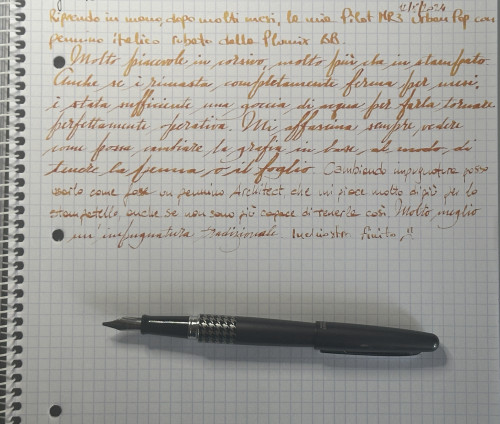 12/5/2024
Riprendo in mano, dopo molti mesi, la mia Pilot MR3 Urban Pop con
pennino italico rubato dalla Plumix BB
Molto piacevole in corsivo, molto più che in stampato
Anche se è rimasta completamente ferma per mesi,
è stata sufficiente una goccia di acqua per farla tornare
perfettamente operativa. Mi affascina sempre vedere
come possa cambiare la grafia in base al modo di
tenere la penna o il foglio. Cambiando impugnatura posso
usarlo come fosse un pennino Architect, che mi piace molto di più per lo
stampatello, anche se non sono più capace di tenerla così. Molto meglio
un'impugnatura tradizionale Inchiostro finito